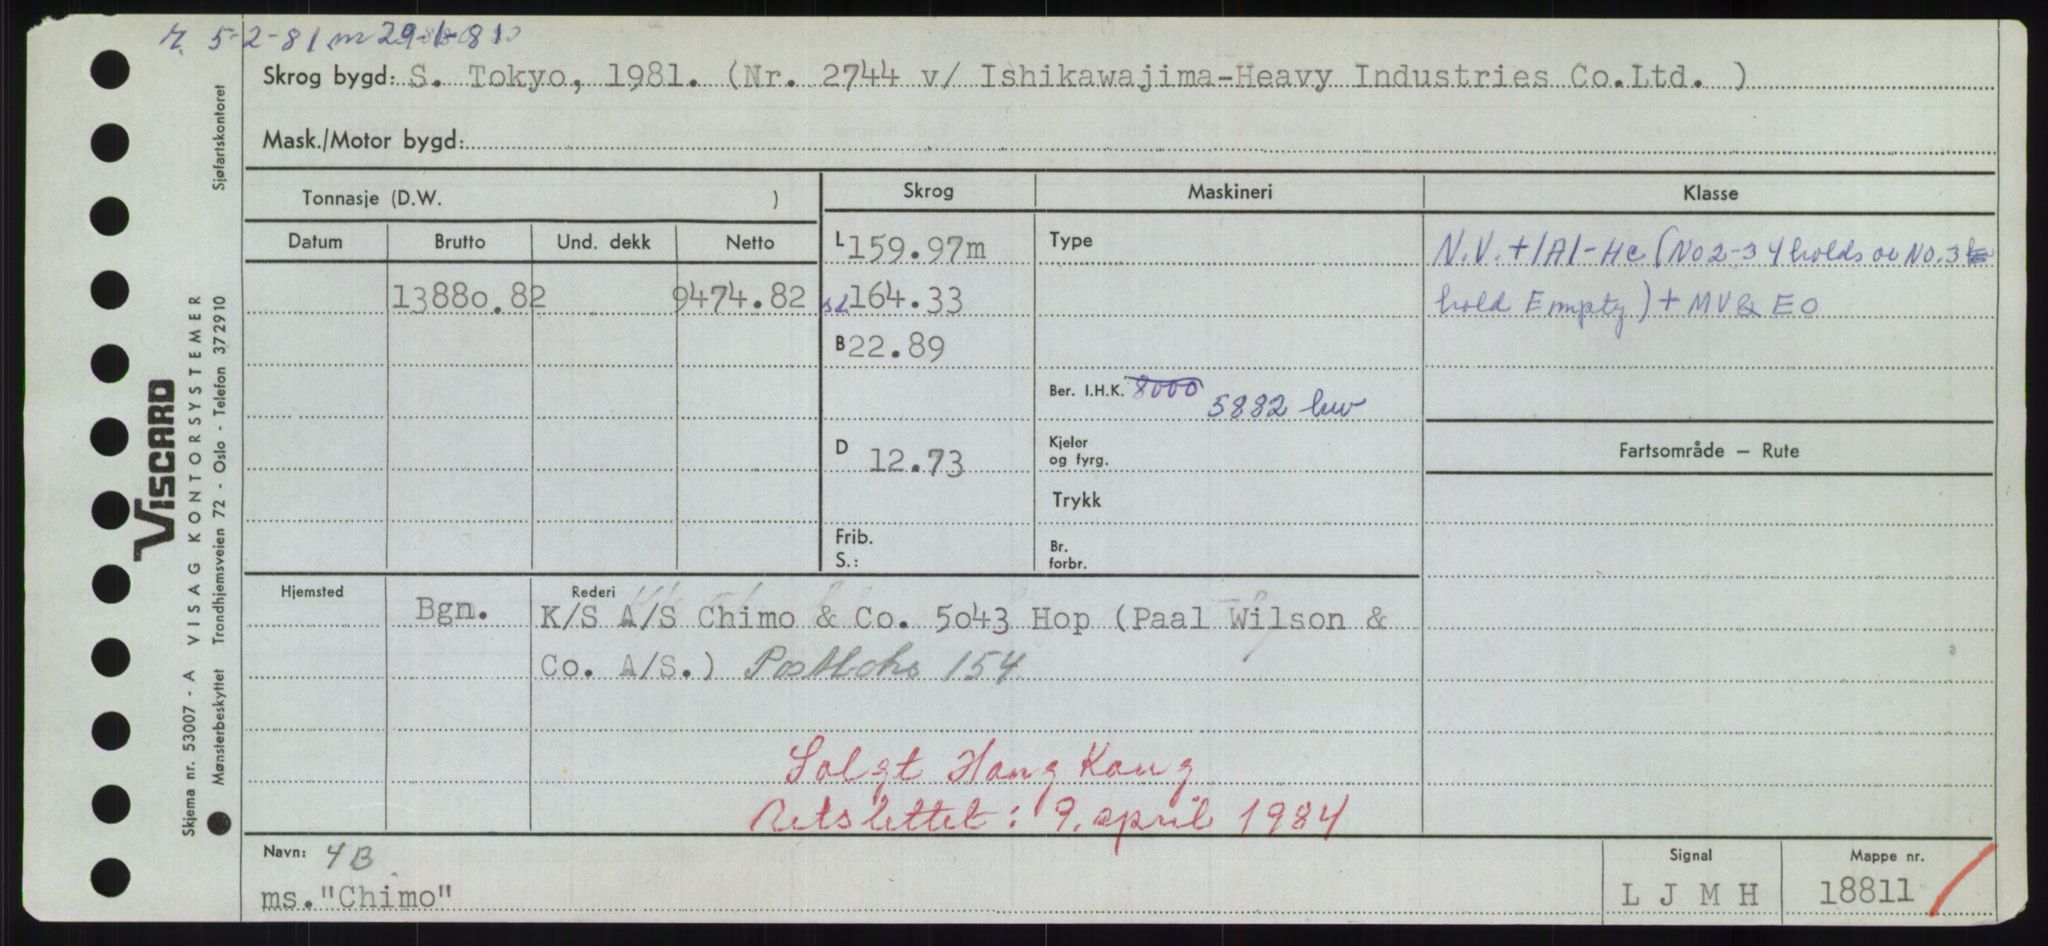 5-2-81 m 29-1-81
Skrog bygd: S. Tokyo, 1981. (Nr. 2744 v/ Ishikawajima-Heavy Industries Co.Ltd. )
Mask./Motor bygd:
Tonnasje (D.W. )
Skrog
Maskineri
Klasse
Datum Brutto Und. dekk Netto
13880.82 9474.82
L 159.97m
sl 164.33
B 22.89
D 12.73
Frib.
S.:
Type
Ber. I.H.K. 8000 5882 kw
Kjeler
og fyrg.
Trykk
Br.
forbr.
N.V. + 1A1 - HC (No 2-3 4 holds or No. 3
hold Empty) + MV & EO
Fartsområde – Rute
Hjemsted Bgn.
Rederi
K/S A/S Chimo & Co. 5043 Hop (Paal Wilson &
Co. A/S.) Postboks 154
Solgt Hong Kong
Retslettet: 9. april 1984
Navn: 4B
ms."Chimo"
Signal
L J M H
Mappe nr.
18811
VISCARD
Skjema nr. 53007 - A VISAG KONTORSYSTEMER
Mønsterbeskyttet Trondhjemsveien 72 - Oslo - Telefon 372910 Sjøfartskontoret